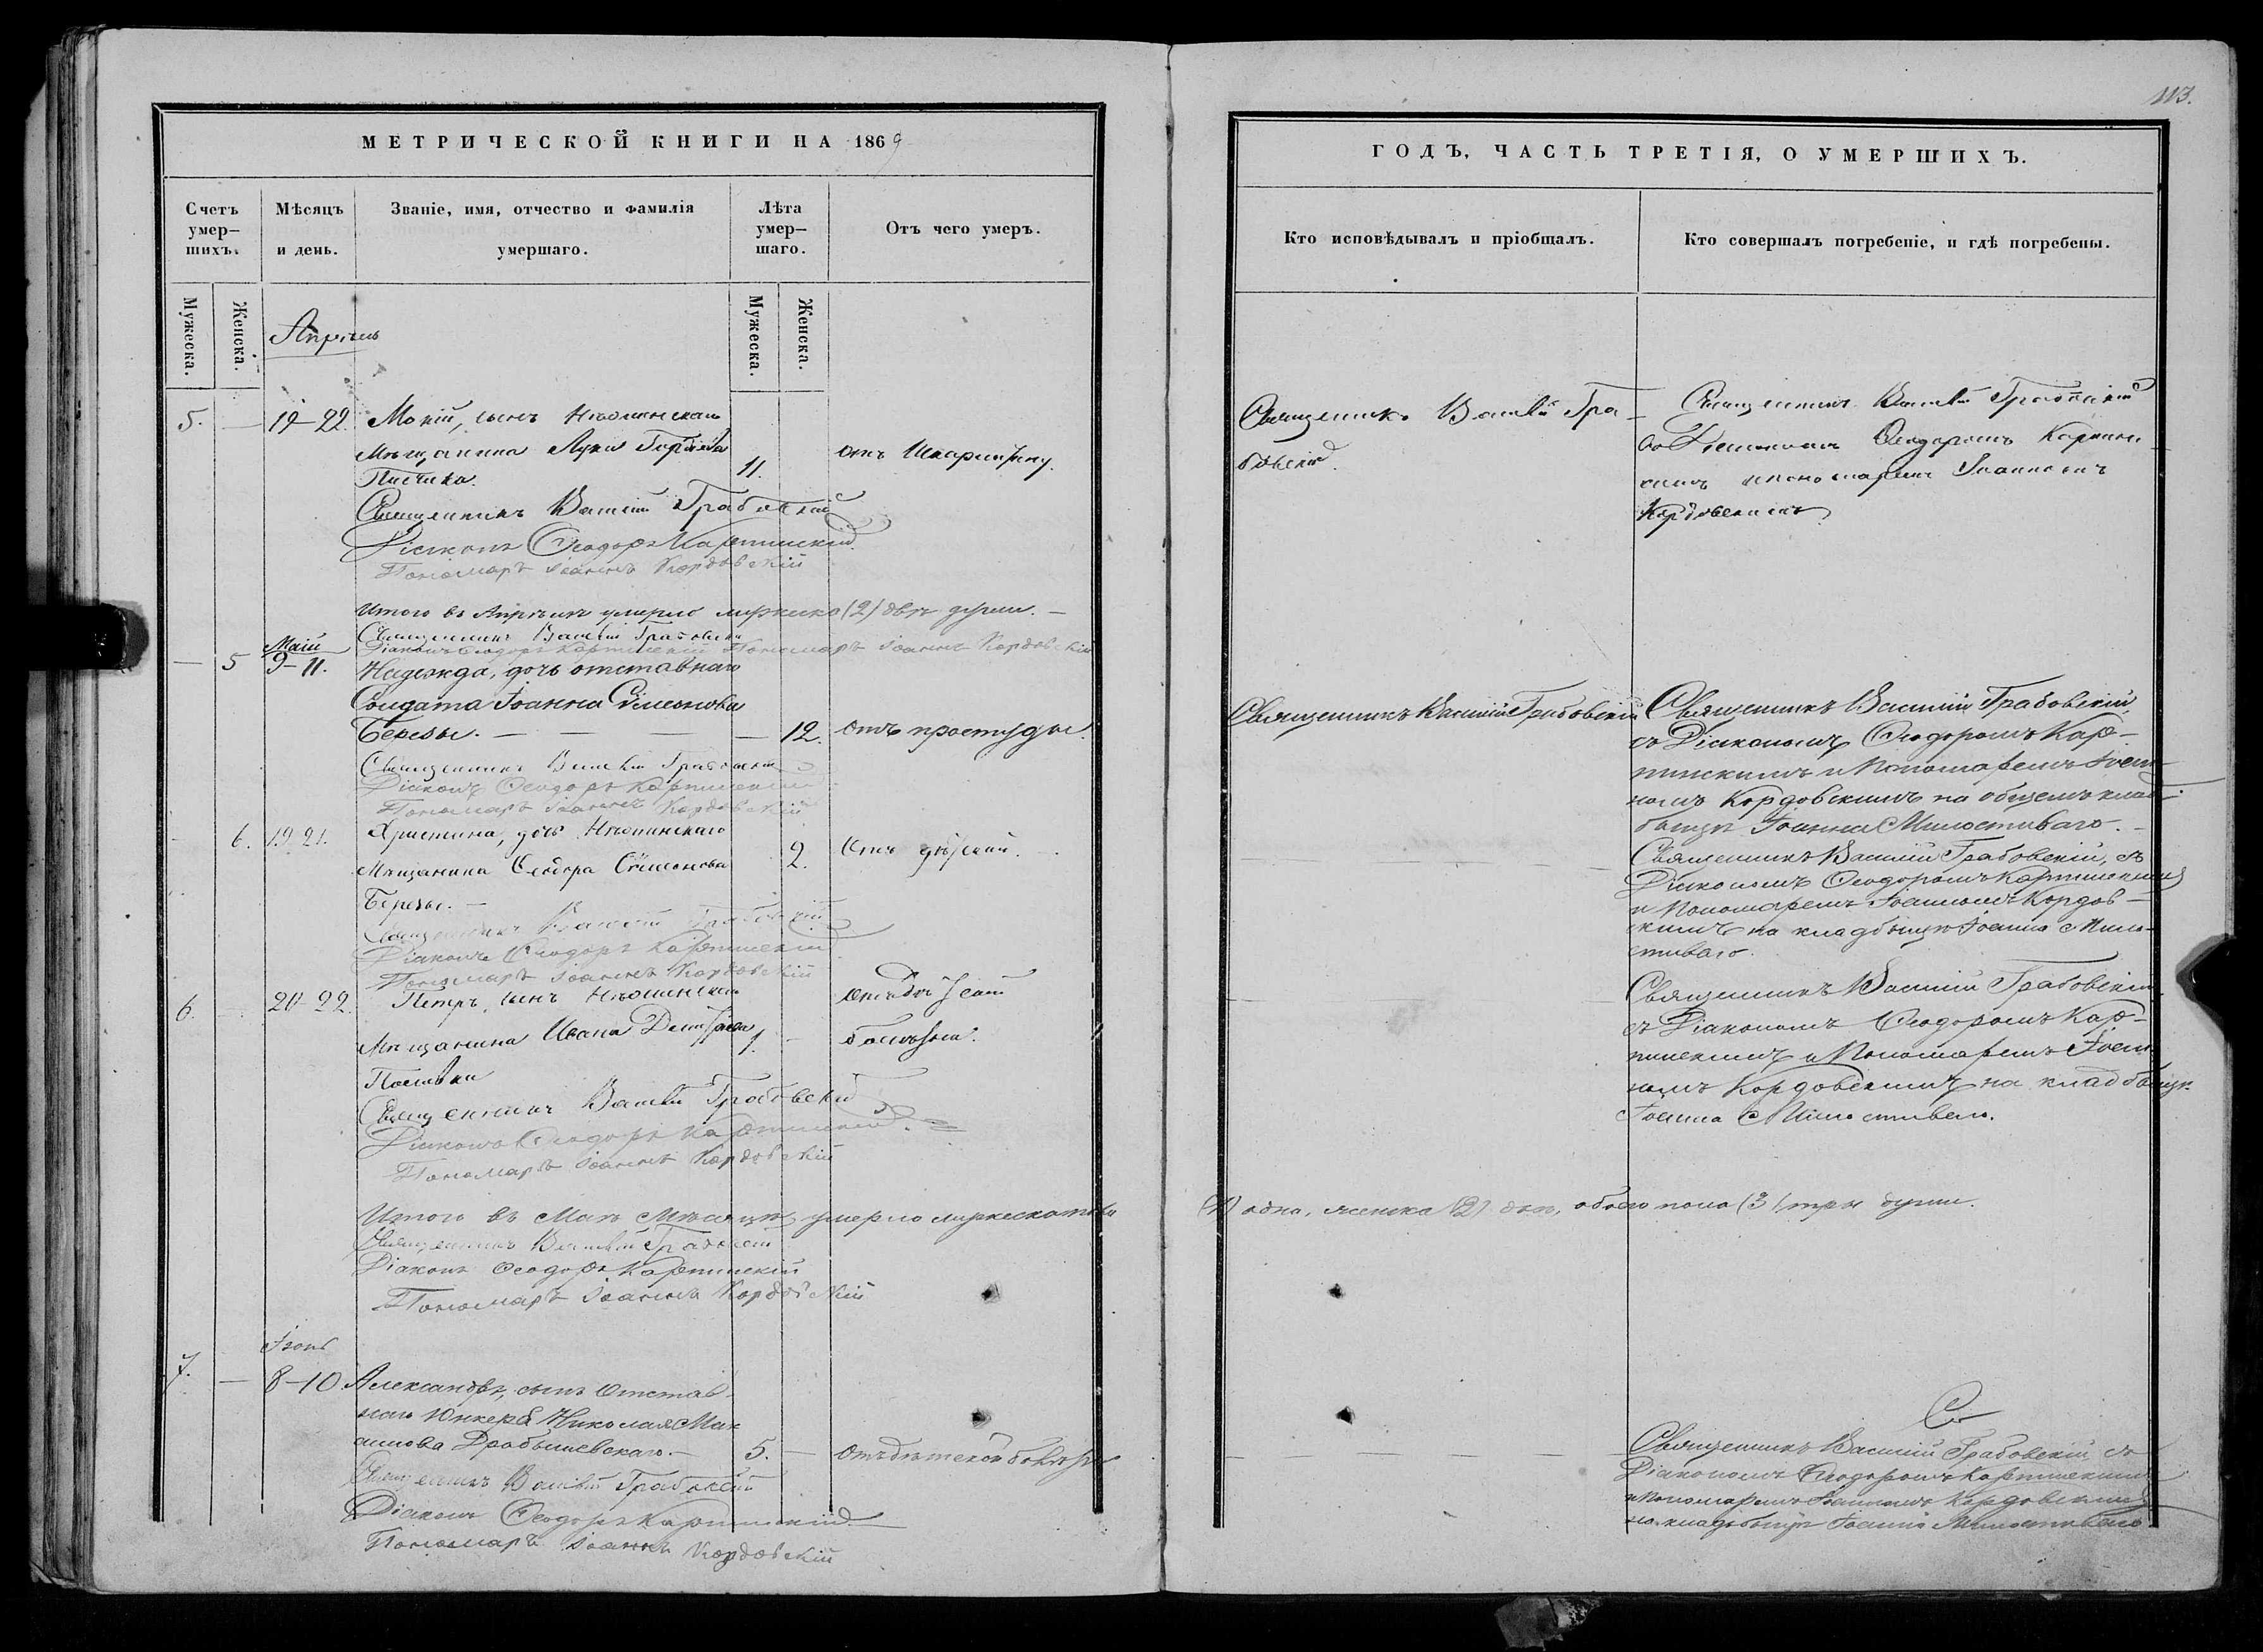 113.
МЕТРИЧЕСКОЙ КНИГИ НА 1869
Счетъ умер-шихъ.
Мѣсяцъ и день.
Званіе, имя, отчество и фамилія умершаго.
Лѣта умер-шаго.
Отъ чего умеръ.
Мужеска.
Женска.
Мужеска.
Женска.
Апрѣль
5. — 19-22. Мокій, сынъ Нѣжинскаго
Мѣщанина Луки
11.
Священникъ Василій Грабовскій
Діаконъ Ѳеодоръ Карпинскій
Пономарь Іоаннъ Кордовскій
Итого въ Апрѣлѣ умерло мужеска (2) двѣ души. —
Священникъ Василій Грабовскій
Діаконъ Ѳеодоръ Карпинскій Пономарь Іоаннъ Кордовскій
Маій
— 5 9-11. Надежда, дочь отставнаго
Солдата Іоанна Симеонова
Березы. — — — — 12. отъ простуды.
Священникъ Василій Грабовскій
Діаконъ Ѳеодоръ Карпинскій
Пономарь Іоаннъ Кордовскій
- 6. 19-21. Христина, дочь Нѣжинскаго
Мѣщанина Ѳеодора Симеонова 2.
Березы. —
Священникъ Василій Грабовскій
Діаконъ Ѳеодоръ Карпинскій
Пономарь Іоаннъ Кордовскій
6. 20-22. Петръ, сынъ Нѣжинскаго
Мѣщанина Ивана 1. — болѣзни.
Священникъ Василій Грабовскій
Діаконъ Ѳеодоръ Карпинскій.
Пономарь Іоаннъ Кордовскій
Итого въ Маѣ Мѣсяцѣ умерло мужеска пола
Священникъ Василій Грабовскій
Діаконъ Ѳеодоръ Карпинскій
Пономарь Іоаннъ Кордовскій
Іюнь
7. — 8-10 Александръ, сынъ Отстав-
наго Юнкера Николая Мак
симова Дробышевскаго. — 5. — Отъ дѣтской болѣзни
Священникъ Василій Грабовскій
Діаконъ Ѳеодоръ Карпинскій
Пономарь Іоаннъ Кордовскій
ГОДЪ, ЧАСТЬ ТРЕТІЯ, О УМЕРШИХЪ.
Кто исповѣдывалъ и пріобщалъ.
Кто совершалъ погребеніе, и гдѣ погребены.
Священникъ Василій Гра-
бовскій.
Священникъ Василій Грабовскій
со Діакономъ Ѳеодоромъ Карпин
скимъ и пономаремъ Іоанномъ
Кордовскимъ
Священникъ Василій Грабовскій
Священникъ Василій Грабовскій,
съ Діакономъ Ѳеодоромъ Кар-
пинскимъ и Пономаремъ Іоан-
номъ Кордовскимъ на общемъ клад-
бищѣ Іоанна Милостиваго. —
Священникъ Василій Грабовскій, съ
Діакономъ Ѳеодоромъ Карпинскимъ
и Пономаремъ Іоанномъ Кордов-
скимъ на кладбищѣ Іоанна Мило-
стиваго.
Священникъ Василій Грабовскій
съ Діакономъ Ѳеодоромъ Кар-
пинскимъ и Пономаремъ Іоан-
номъ Кордовскимъ на кладбищѣ
Іоанна Милостиваго.
(1) одна, женска (2) двѣ, обоего пола (3) три души.
Священникъ Василій Грабовскій съ
Діакономъ Ѳеодоромъ Карпинскимъ
и Пономаремъ Іоанномъ Кордовскимъ
на кладбищѣ Іоанна Милостиваго